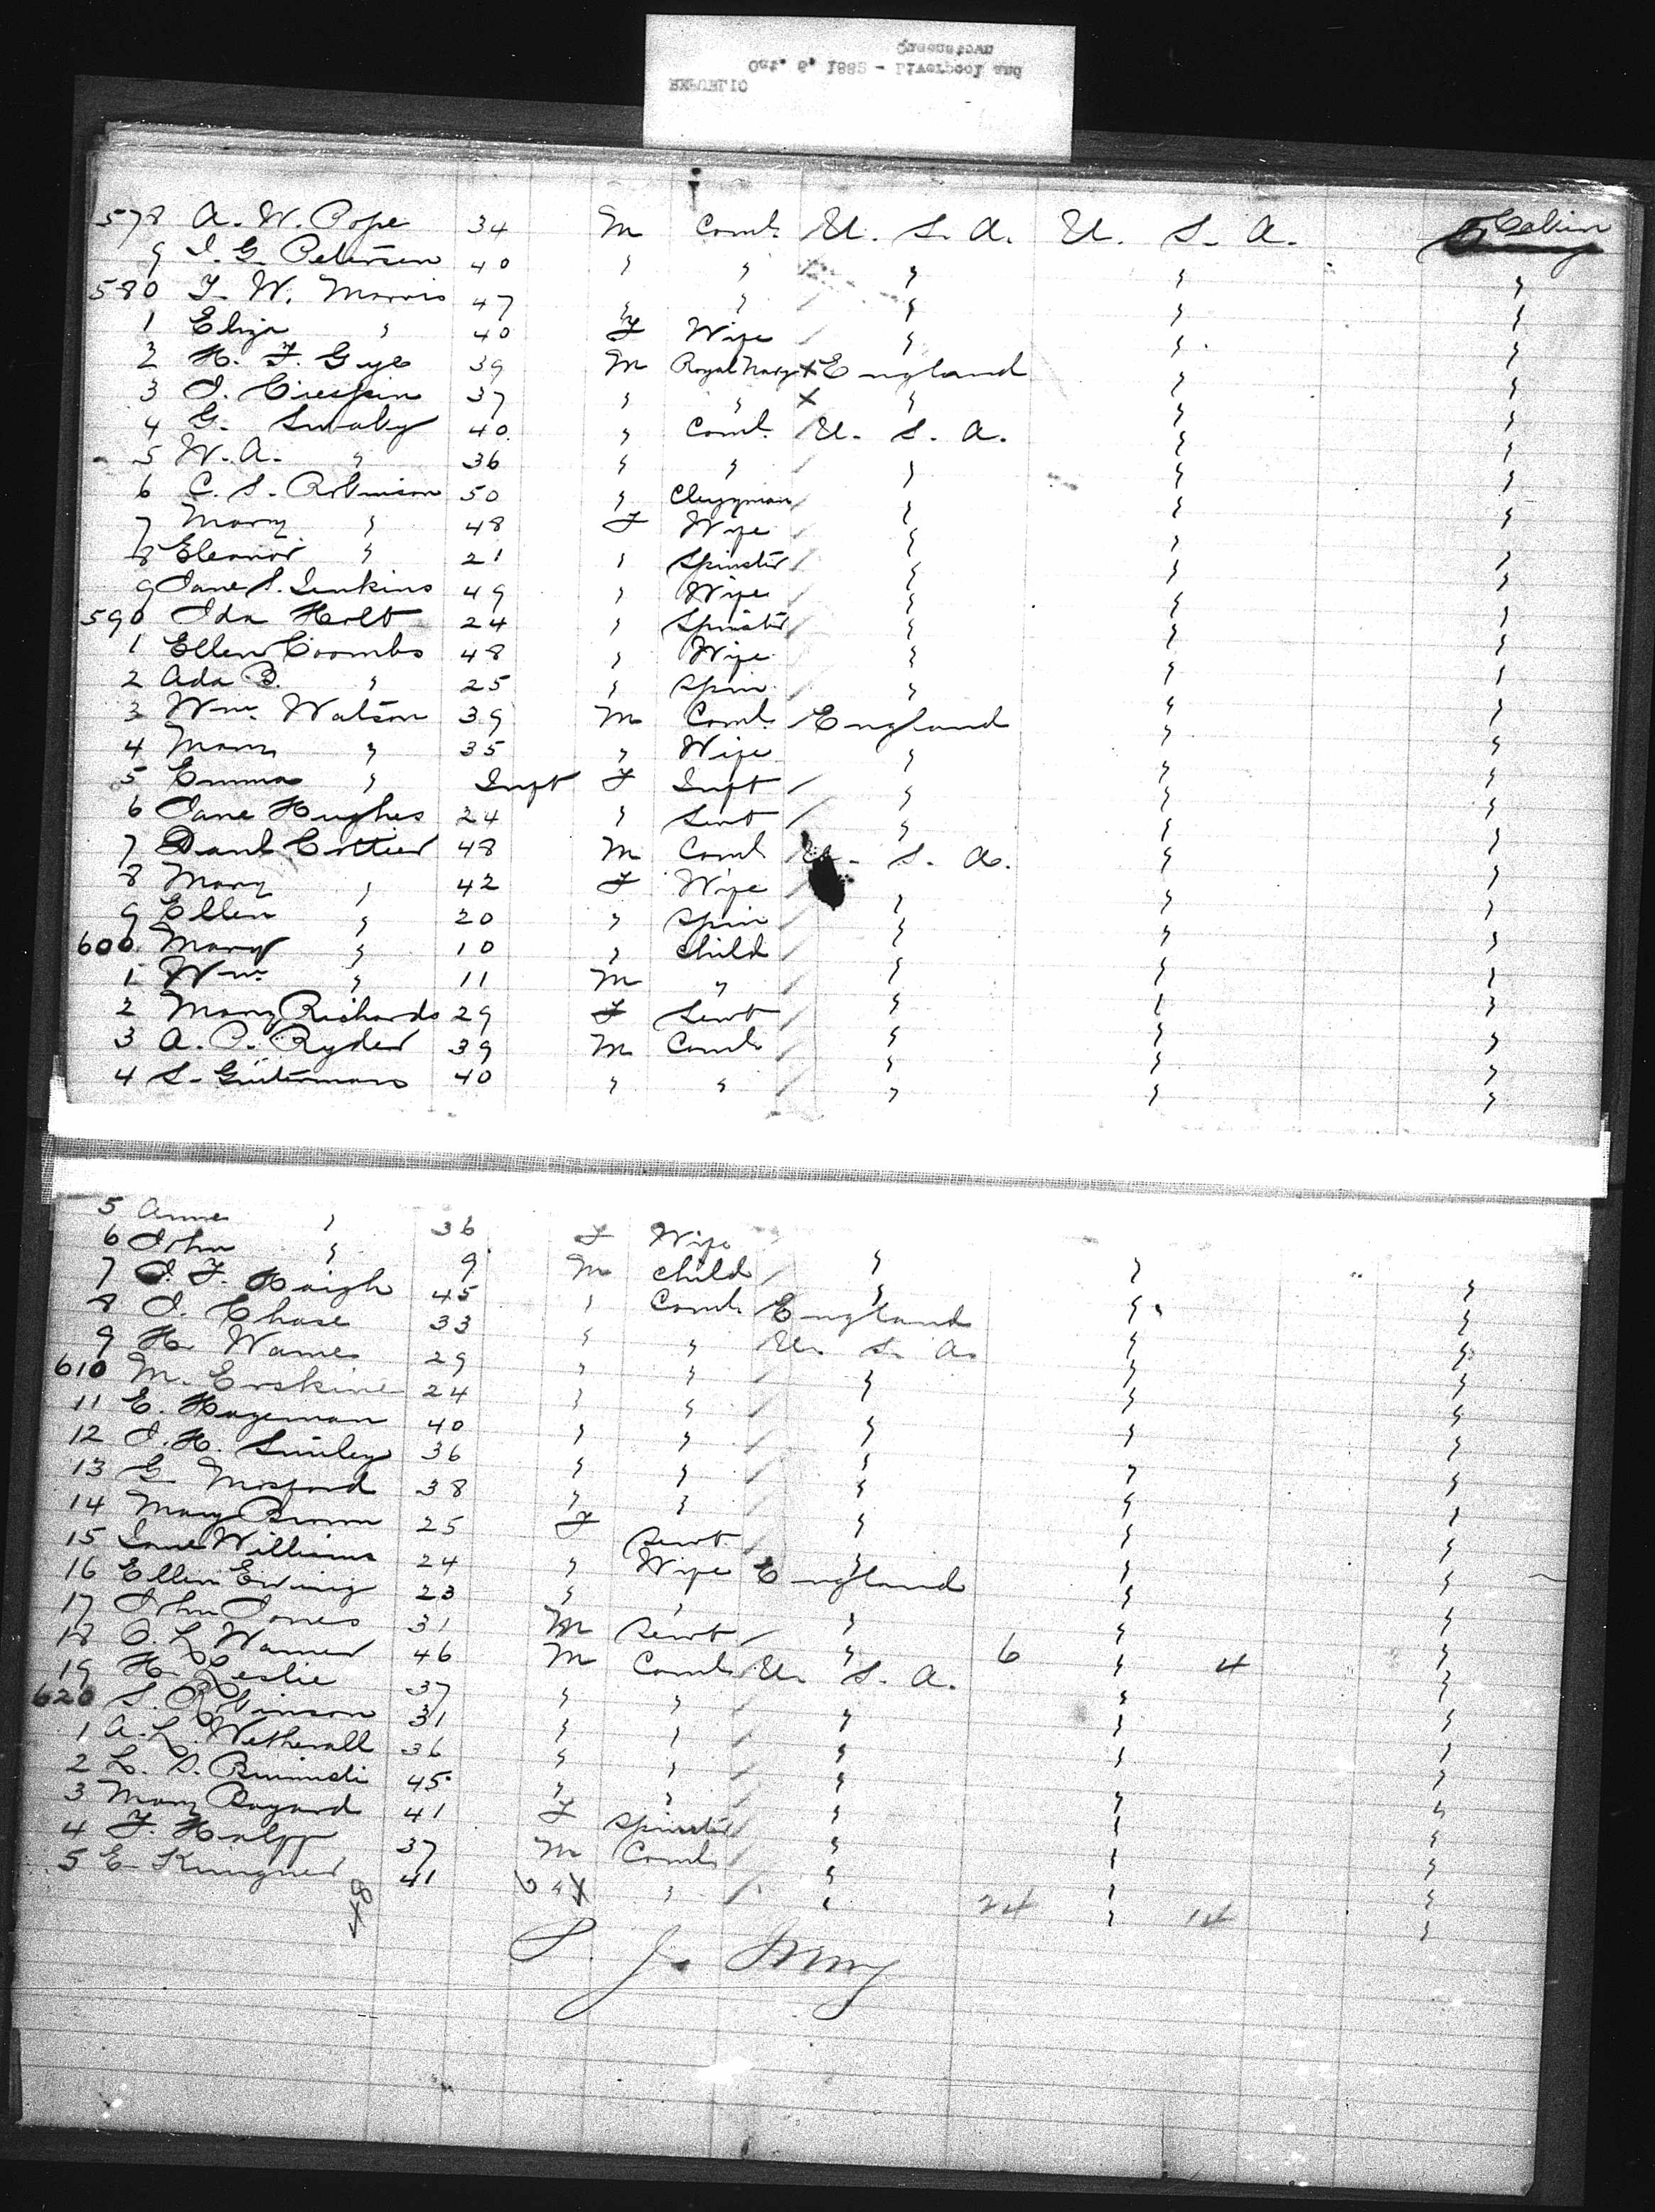 REPUBLIC
Oct. 6, 1882 - Liverpool and
Queenstown
578 A. W. Pope 34 M Coml. U. S. A. U. S. A. Cabin
9 J. G. Petersen 40 " " " " "
580 T. W. Morris 47 " " " " "
1 Eliza " 40 F Wife " " "
2 H. F. Gye 39 M Royal Navy x England " "
3 J. Crespin 37 " " x " " "
4 G. Smaby 40 " Coml. U. S. A. " "
5 W. A. " 36 " " " " "
6 C. S. Robinson 50 " Clergyman " " "
7 Mary " 48 F Wife " " "
8 Eleanor " 21 " Spinster " " "
9 Jane S. Jenkins 49 " Wife " " "
590 Ida Holt 24 " Spinster " " "
1 Ellen Coombs 48 " Wife " " "
2 Ada B. " 25 " Spin " " "
3 Wm. Watson 39 M Coml. England " "
4 Mary " 35 " Wife " " "
5 Emma " Inft F Inft " " "
6 Jane Hughes 24 " Servt " " "
7 Danl Cottier 48 M Coml U. S. A. " "
8 Mary " 42 F Wife " " "
9 Ellen " 20 " Spin " " "
600 Mary " 10 " Child " " "
1 Wm. " 11 M " " " "
2 Mary Richards 29 F Servt " " "
3 A. P. Ryder 39 M Coml. " " "
4 S. Gütermans 40 " " " " "
5 Anne " 36 F Wife " " "
6 John " 9 M Child " " "
7 J. F. Haigh 45 " Coml. England " "
8 J. Chase 33 " " U. S. A. " "
9 H. Warner 29 " " " " "
610 M. Erskine 24 " " " " "
11 E. Hageman 40 " " " " "
12 J. H. Smiley 36 " " " " "
13 G. Mosford 38 " " " " "
14 Mary Brown 25 F Servt. " " "
15 Jane Williams 24 " Wife England " "
16 Ellen Ewing 23 " " " " "
17 John Jones 31 M Servt " 6 " 4 "
18 O. L. Warner 46 M Coml. U. S. A. " "
19 H. Leslie 37 " " " " "
620 S. Robinson 31 " " " " "
1 A. L. Wetherall 36 " " " " "
2 L. D. 45 " " " " "
3 Mary Bayard 41 F Spinster " " "
4 F. 37 M Coml. " " "
5 E. 41 " " " 24 " 14 "
48